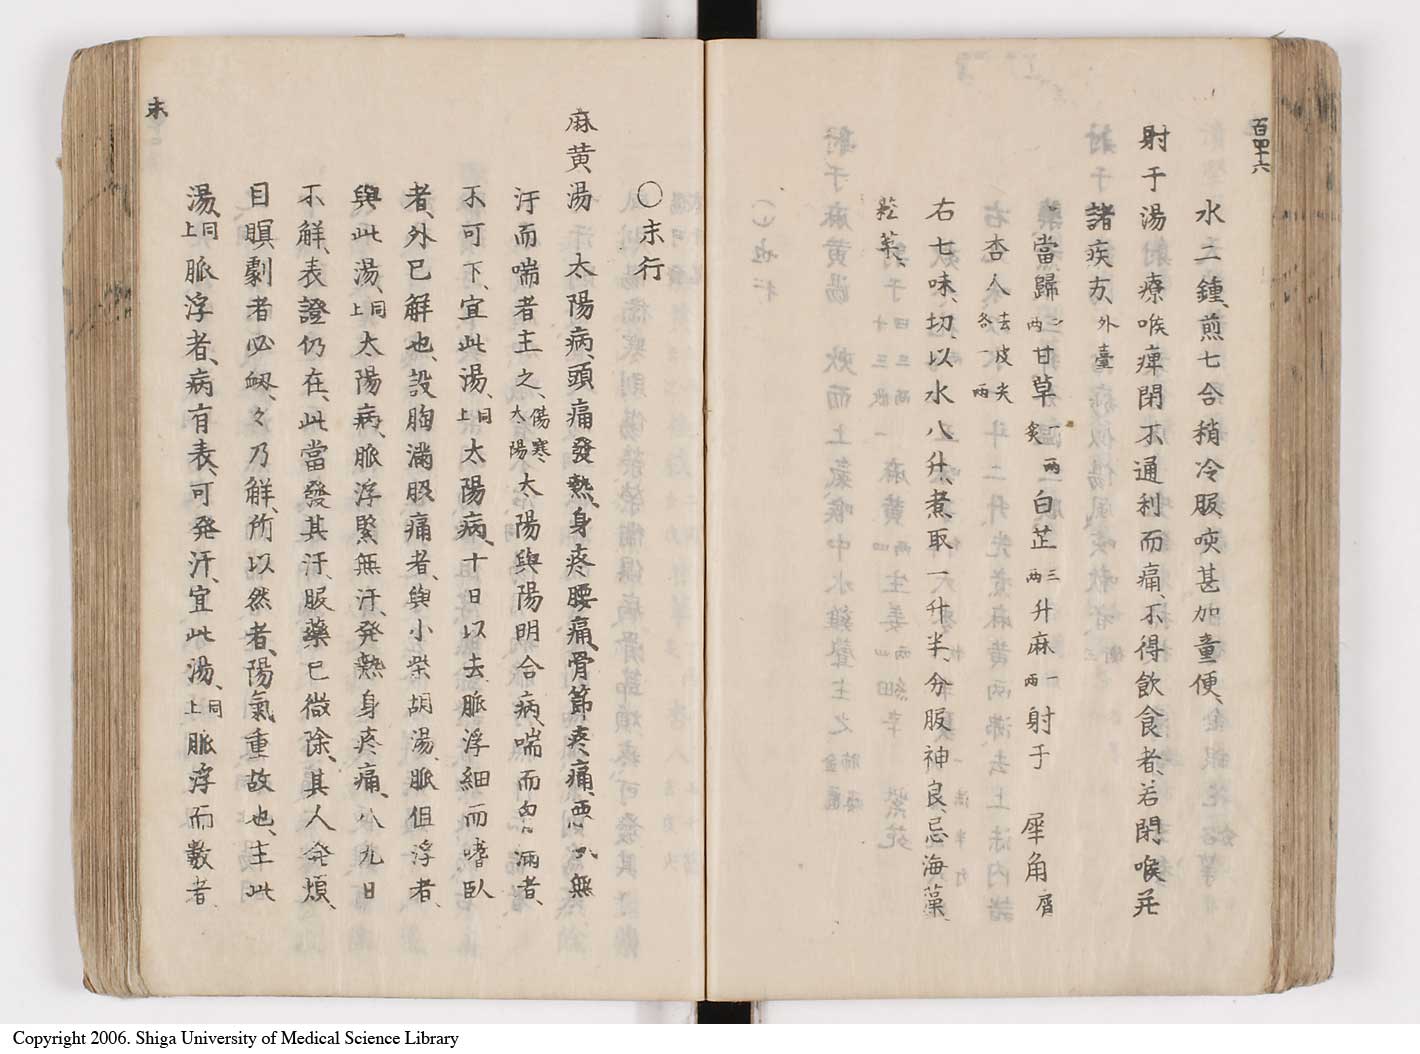 百四十六
水二鍾、煎七合稍冷服、咳甚加童便、
射于湯 療喉痺閉不通利而痛、不得飲食者、若閉喉并
諸疾方、外臺
當歸二兩 甘草一兩炙 白芷三兩 升麻一兩 射于 犀角屑
杏人去皮尖各一兩
右七味、切、以水八升、煮取一升半、分服神良、忌海藻
菘菜、
末
○末行
麻黄湯 太陽病、頭痛發熱、身疼腰痛、骨節疼痛、悪風無
汗而喘者主之、傷寒太陽 太陽與陽明合病、喘而胸滿者、
不可下、宜此湯、同上 太陽病、十日以去脈浮細而嗜臥
者、外已解也、設胸滿脇痛者、與小柴胡湯、脈但浮者、
與此湯、同上 太陽病、脈浮緊無汗、発熱身疼痛、八九日
不解、表證仍在、此當發其汗、服藥已微除、其人発煩、
目瞑劇者必衂、々乃解、所以然者、陽氣重故也、主此
湯、同上 脈浮者、病有表、可発汗、宜此湯、同上 脈浮而數者
Copyright 2006. Shiga University of Medical Science Library